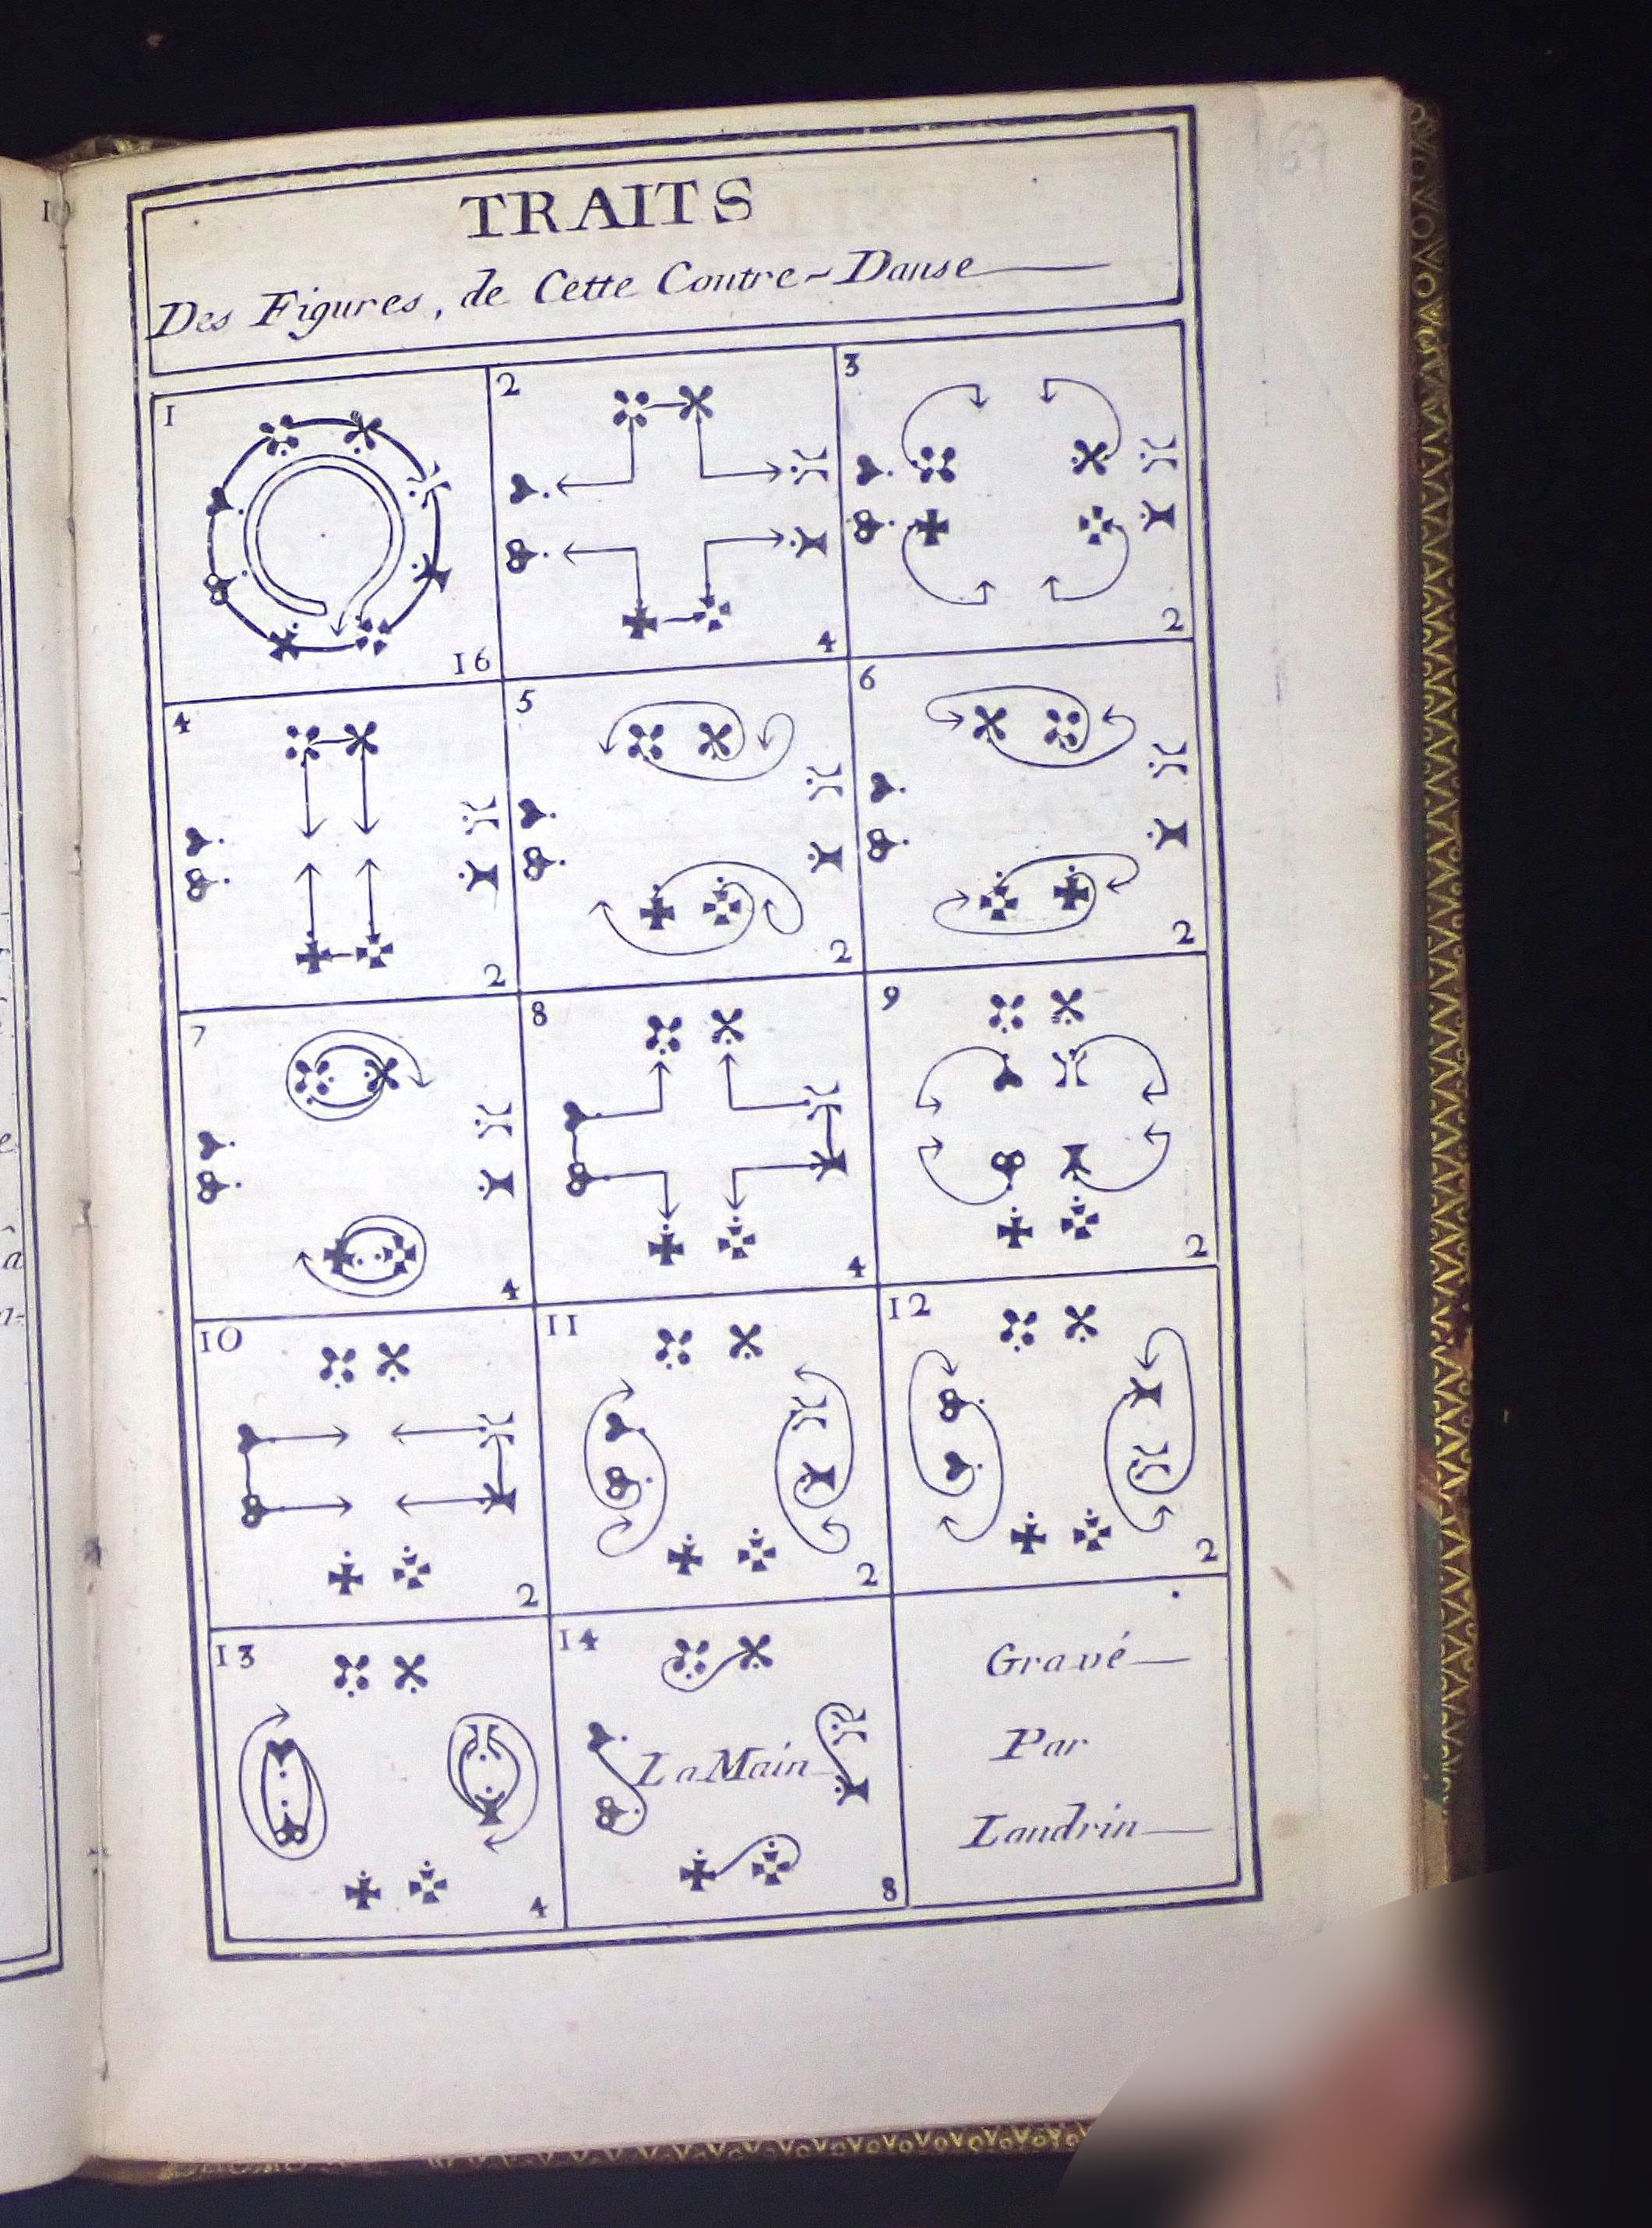 TRAITS
Des Figures, de Cette Contre-Danse
1
16
2
4
3
2
4
2
5
2
6
2
7
4
8
4
9
2
10
2
11
2
12
2
13
4
14
La Main
8
Gravé
Par
Landrin